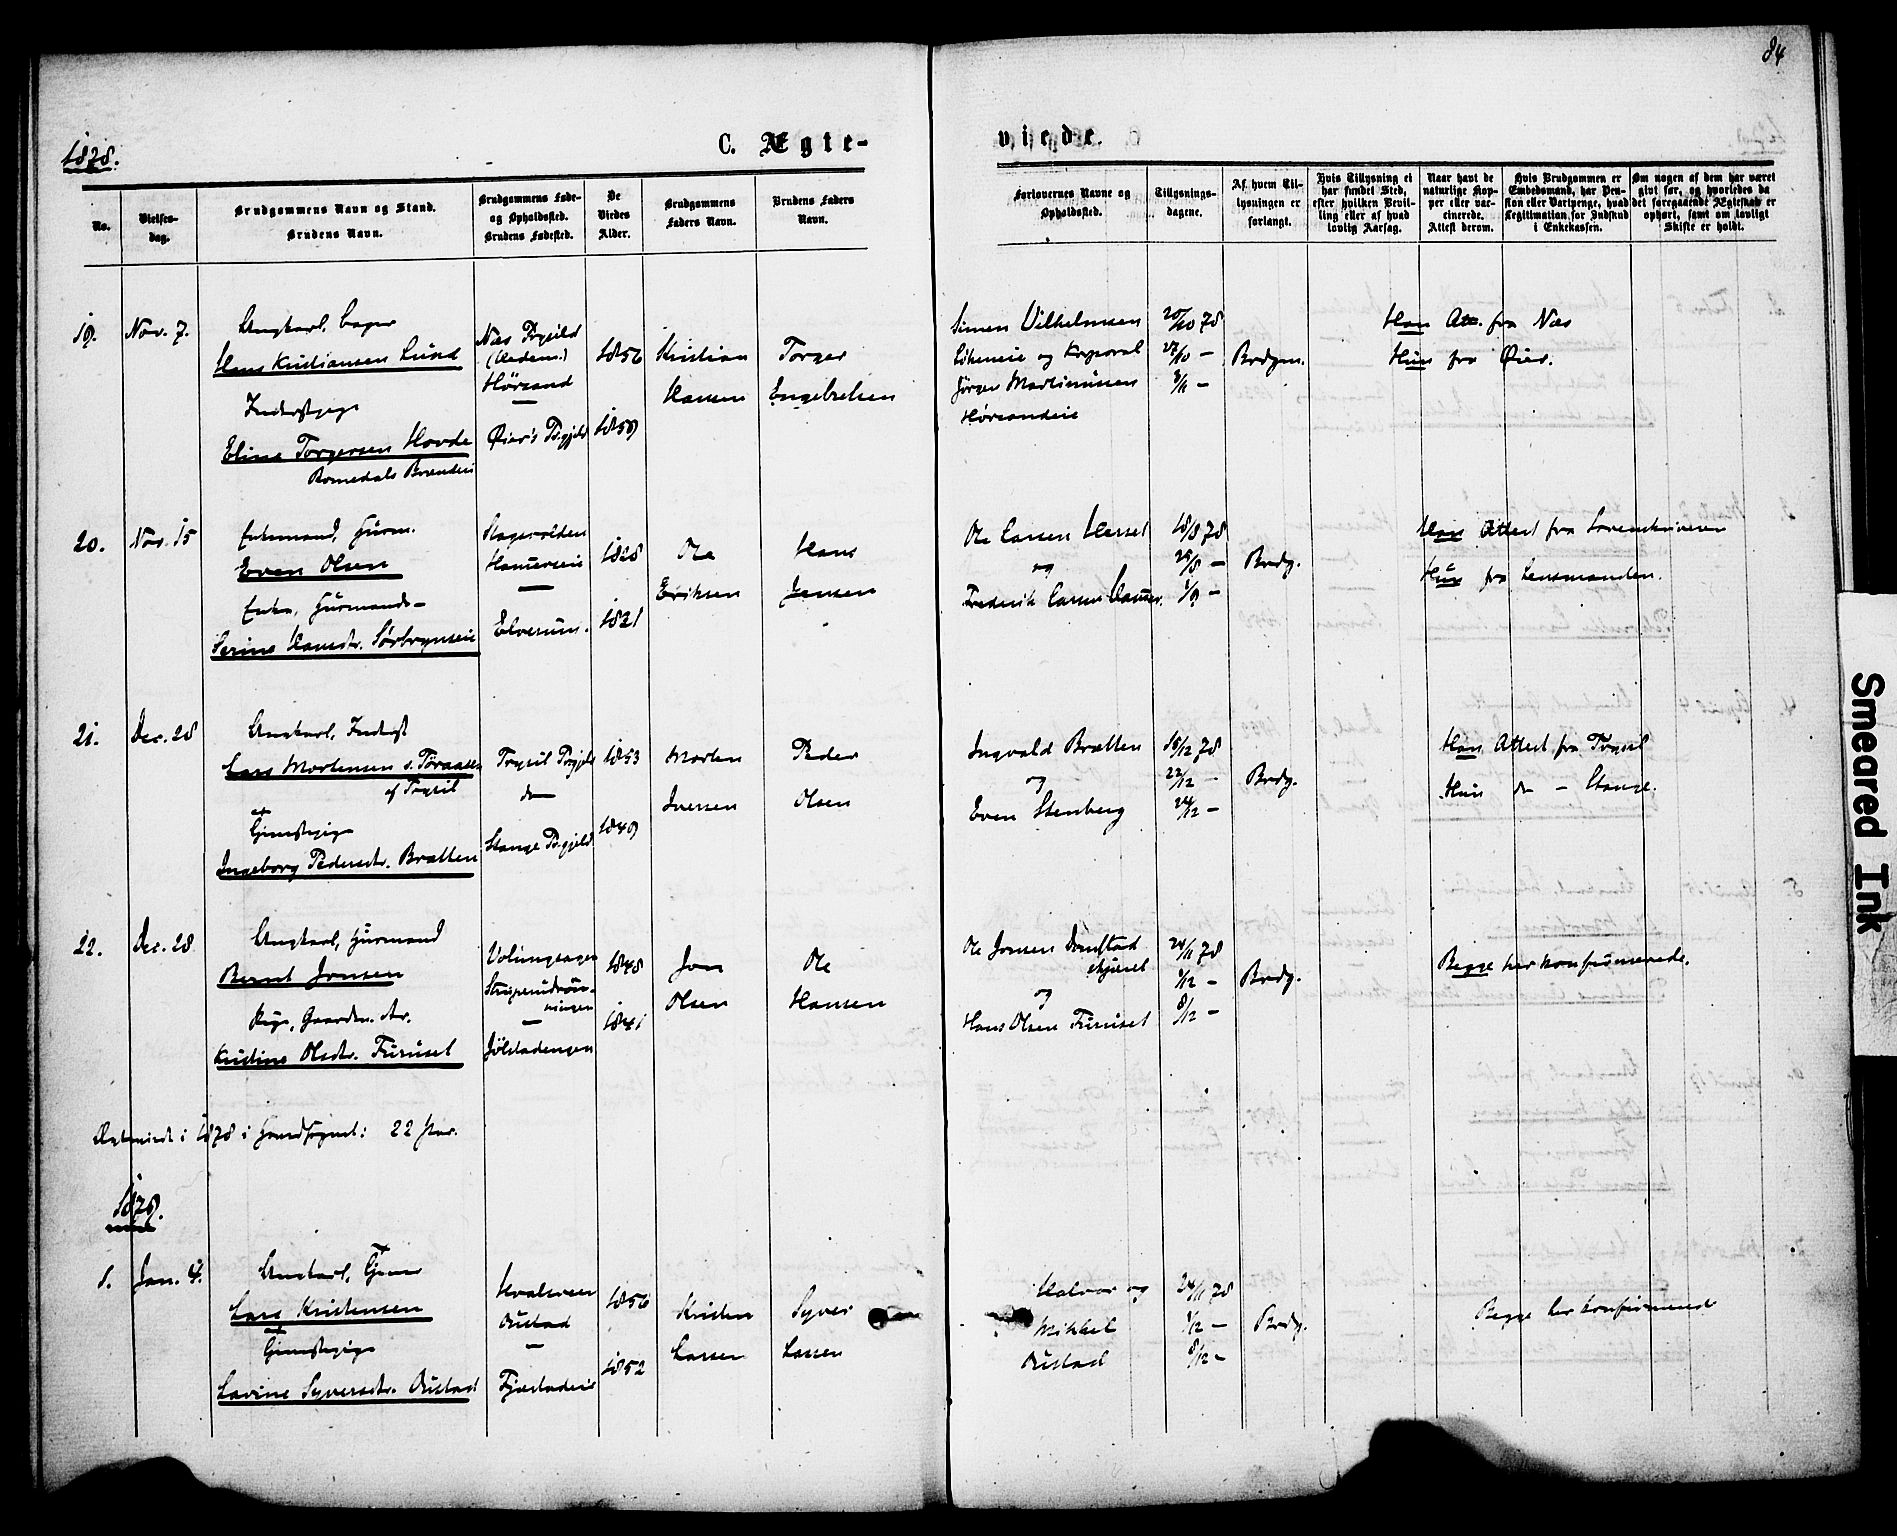 84
1878.
C. Ægte-
viede.
No.
Vielses-
dag.
Brudgommens Navn og Stand.
Brudens Navn.
Brudgommens Føde-
og Opholdssted.
Brudens Fødested.
De
Viedes
Alder.
Brudgommens
Faders Navn.
Brudens Faders
Navn.
Forlovernes Navne og
Opholdssted.
Tillysnings-
dagene.
Af hvem Til-
lysningen er
forlangt.
Hvis Tillysning ei
har fundet Sted,
efter hvilken Bevil-
ling eller af hvad
lovlig Aarsag.
Naar havt de
naturlige Kop-
per eller vac-
cinerede.
Attest derom.
Hvis Brudgommen er
Embedsmand, har Pen-
sion eller Vartpenge, hvad
Legitimation for Indskud
i Enkekassen.
Om nogen af dem har været
gift før, og hvorledes da
det foregaaende Ægteskab er
ophørt, samt om lovligt
Skifte er holdt.
19.
Nov. 7.
Ungkarl, Bager
Hans Kristiansen Lund
Inderstpige
Eline Torgersen Hovde
Romedals Brænderi
Næs Prgjeld
(Hedem.)
Hörsand
Øier's Prgjeld
1856
1859
Kristian
Hansen
Torger
Engebretsen
Simen Vilhelmsen
og Korporal
Jörgen Martinussen
Hörsandeie
20/10 78
27/10 -
3/11 -
Brdgm.
Han Att. fra Næs
Hun fra Øier.
20.
Nov. 15
Enkemand, Husm.
Even Olsen
Enke, Husmands-
Serine Hansdtr. Sörbryneie
Hamerseie
Elverum.
1828
1821
Ole
Eriksen
Hans
Jensen
Ole Larsen Hersel
og
Frederik Larsen Hamer.
18/8 78
25/8 -
1/9 -
Brdg.
Han Attest fra Sorenskriveren
Hun fra Lensmanden.
21.
Dec. 28
Ungkarl, Inderst
Lars Mortensen s. Toraasen
af Trysil
og
Gjenstepige
Ingeborg Pedersdtr. Bratten
Trysil Prgjeld
do
Stange Prgjeld
1853
1849
Morten
Iversen
Peder
Olsen
Ingvald Bratten
og
Even Stenberg
15/12 78
22/12 -
24/12 -
Brdg.
Han Attest fra Trysil
Hun do - Stange.
22.
Dec. 28
Ungkarl, Husmand
Bernt Jonsen
Pige, Gaardm. dtr.
Kristine Olsdtr. Furuset
Jölstadengen
1848
1841
Jon
Olsen
Ole
Hansen
Ole Jonsen
og
Hans Olsen Furuset
24/11 78
1/12 -
8/12 -
Brdg.
Begge her konfirmerede.
Ægteviede i 1878 i Hovedsognet: 22 Par.
1879.
1.
Jan. 4.
Ungkarl, Tjener
Lars Kristensen
og
Gjenstepige
Lavine Syversdtr. Oustad
Oustad
Fjæstadeie
1856
1852
Kristen
Larsen
Syver
Larsen
Halvor og
Mikkel
Oustad
24/11 78
1/12 -
8/12 -
Brdg.
Begge her konfirmered
Smeared Ink